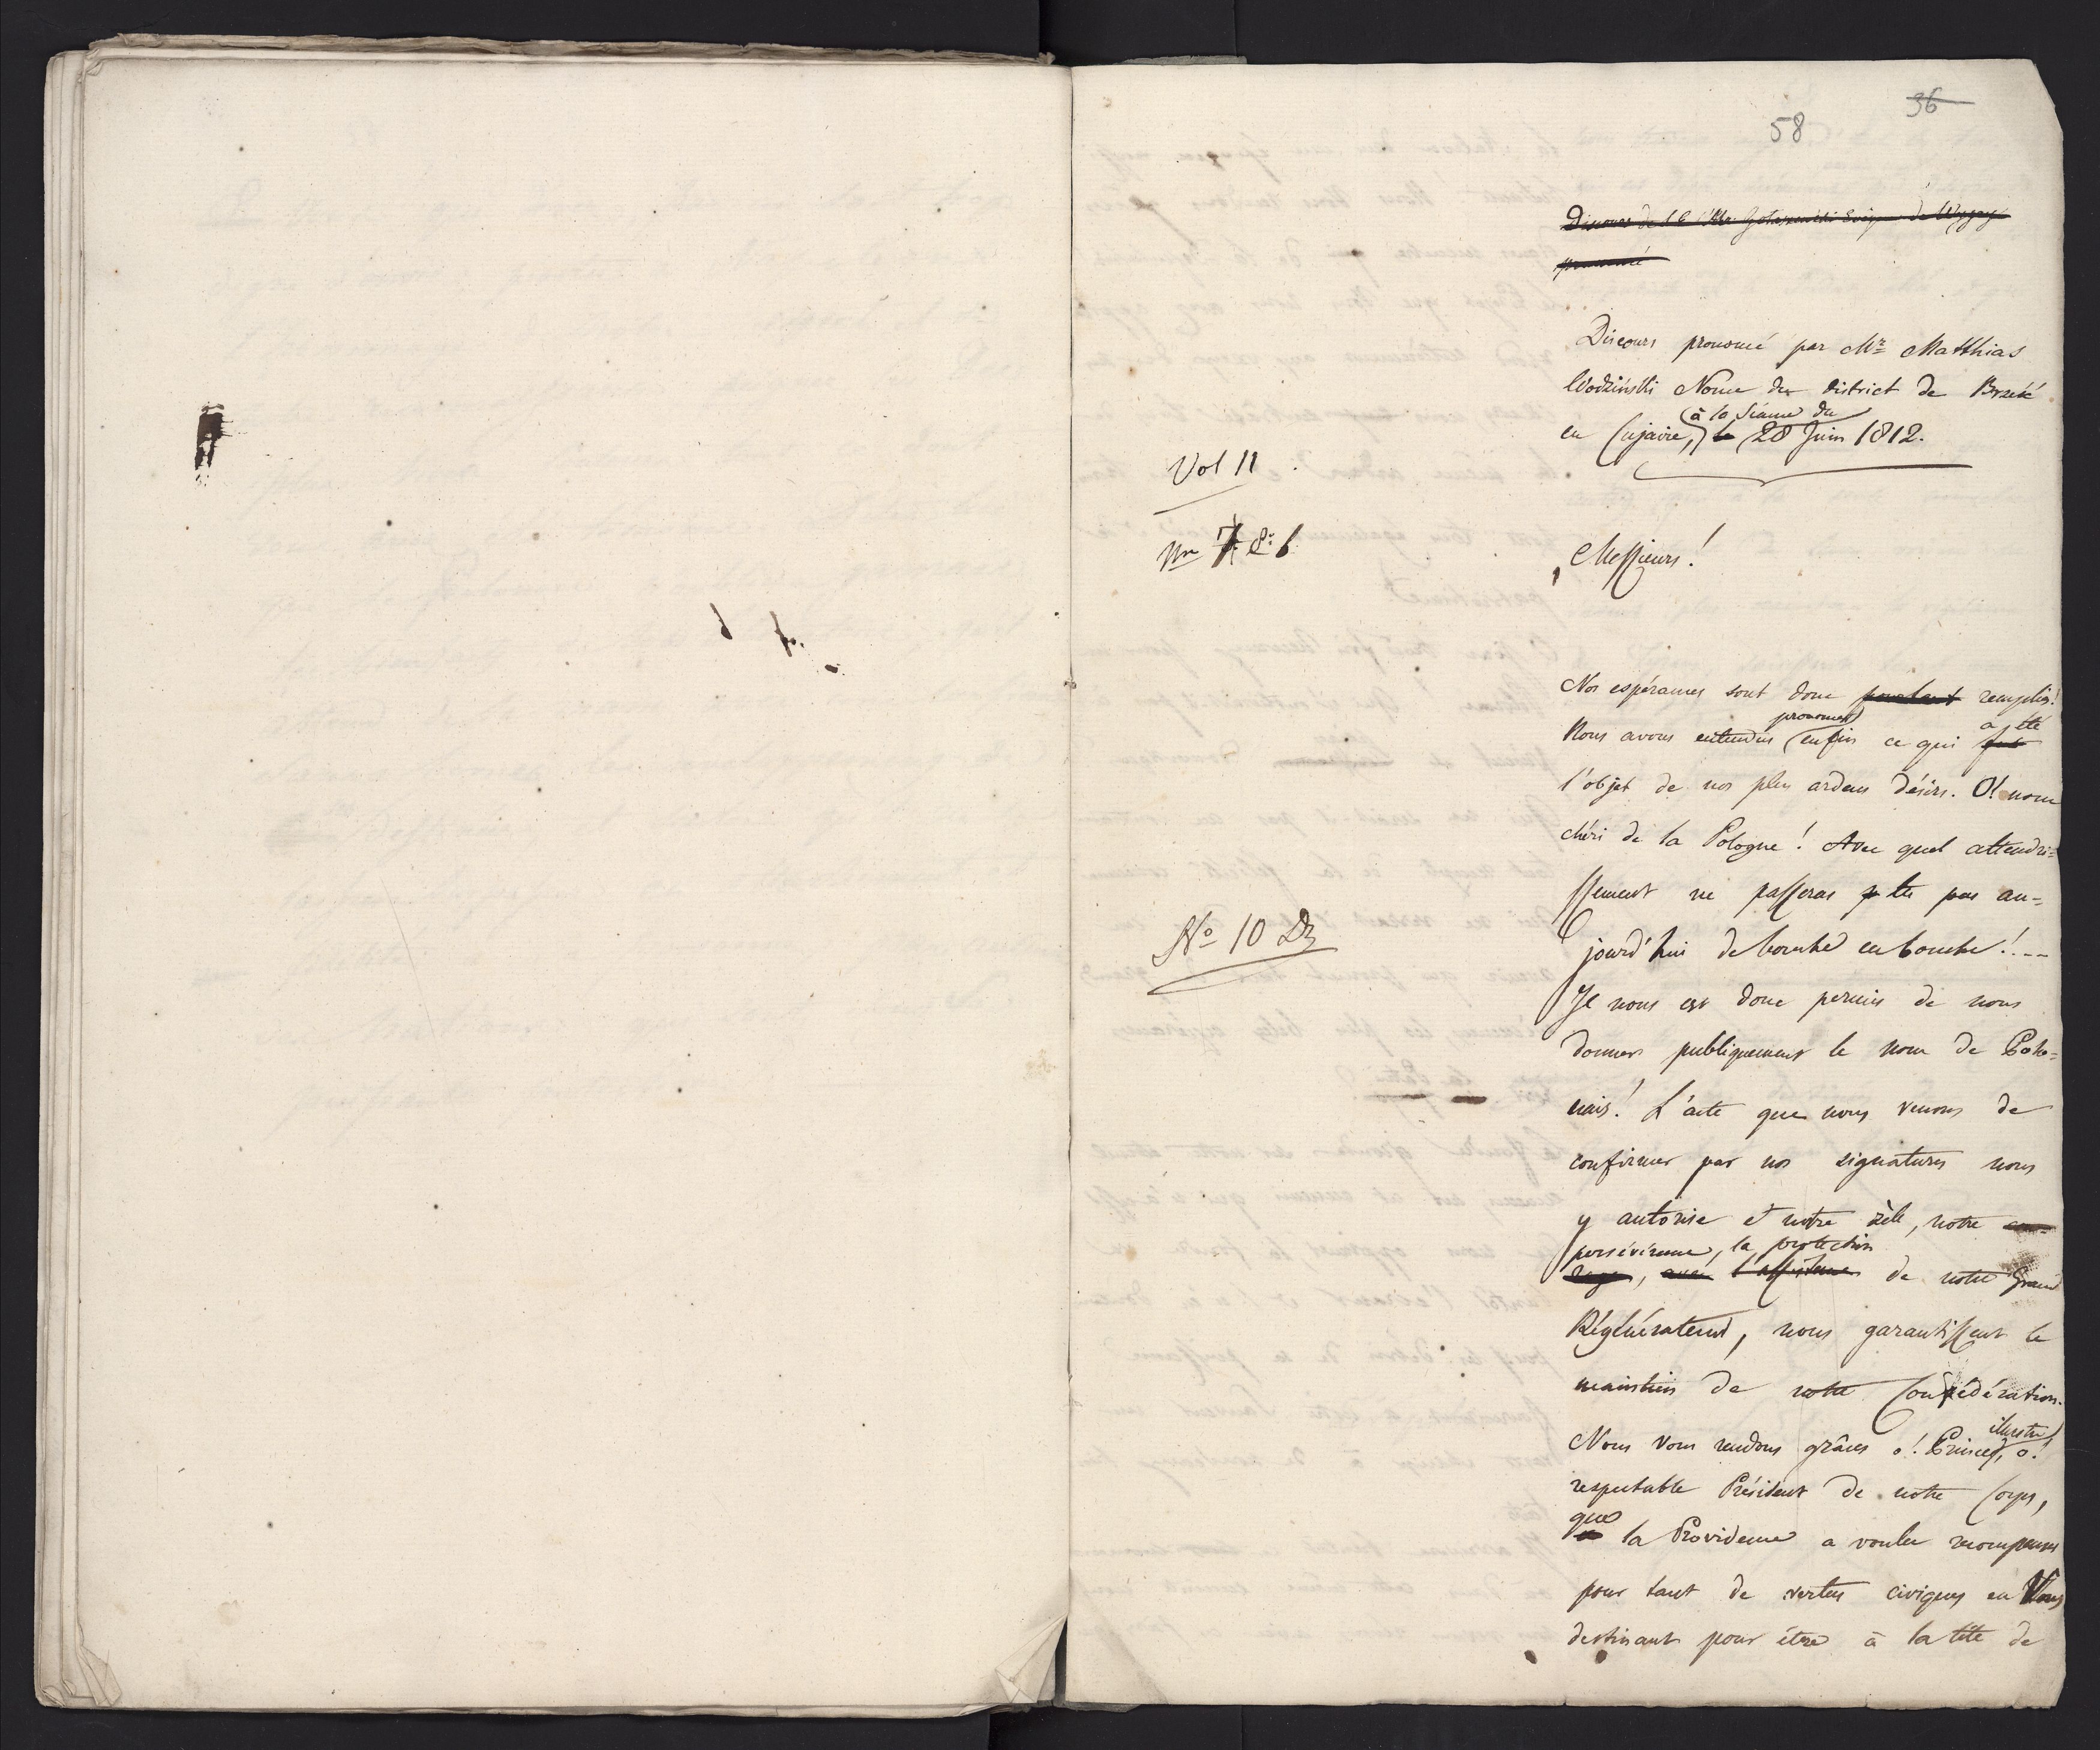 36
58
Discours de
prononcé
Discours prononcé par Mr Matthias
Wodziński Nonce du District de Brześć
à la Séance du
en Cujavie, le 28 Juin 1812.
Vol 11
Nro 7. 8. 6
Messieurs!
Nos espérances sont donc pourtant remplies!
prononcer a été
Nous avons entendus enfin ce qui fut
l'objet de nos plus ardens désirs. O! nom
chéri de la Pologne! Avec quel attendri=
ssement ne passeras tu pas au=
No 10
jourd'hui de bouche en bouche!...
Il nous est donc permis de nous
donner publiquement le nom de Polo=
nais! L'acte que nous venons de
confirmer par nos signatures nous
y autorise et notre zèle, notre cou=
persévérance, la protection
rage, avec l'assistance de notre Grand
Régénérateur, nous garantissent le
maintien de notre Confédération.
illustre
Nous Vous rendons grâces o! Prince, o!
respectable Président de notre Corps,
que
la Providence a voulu recompenser
pour tant de vertus civiques en Vous
destinant pour être à la tête de